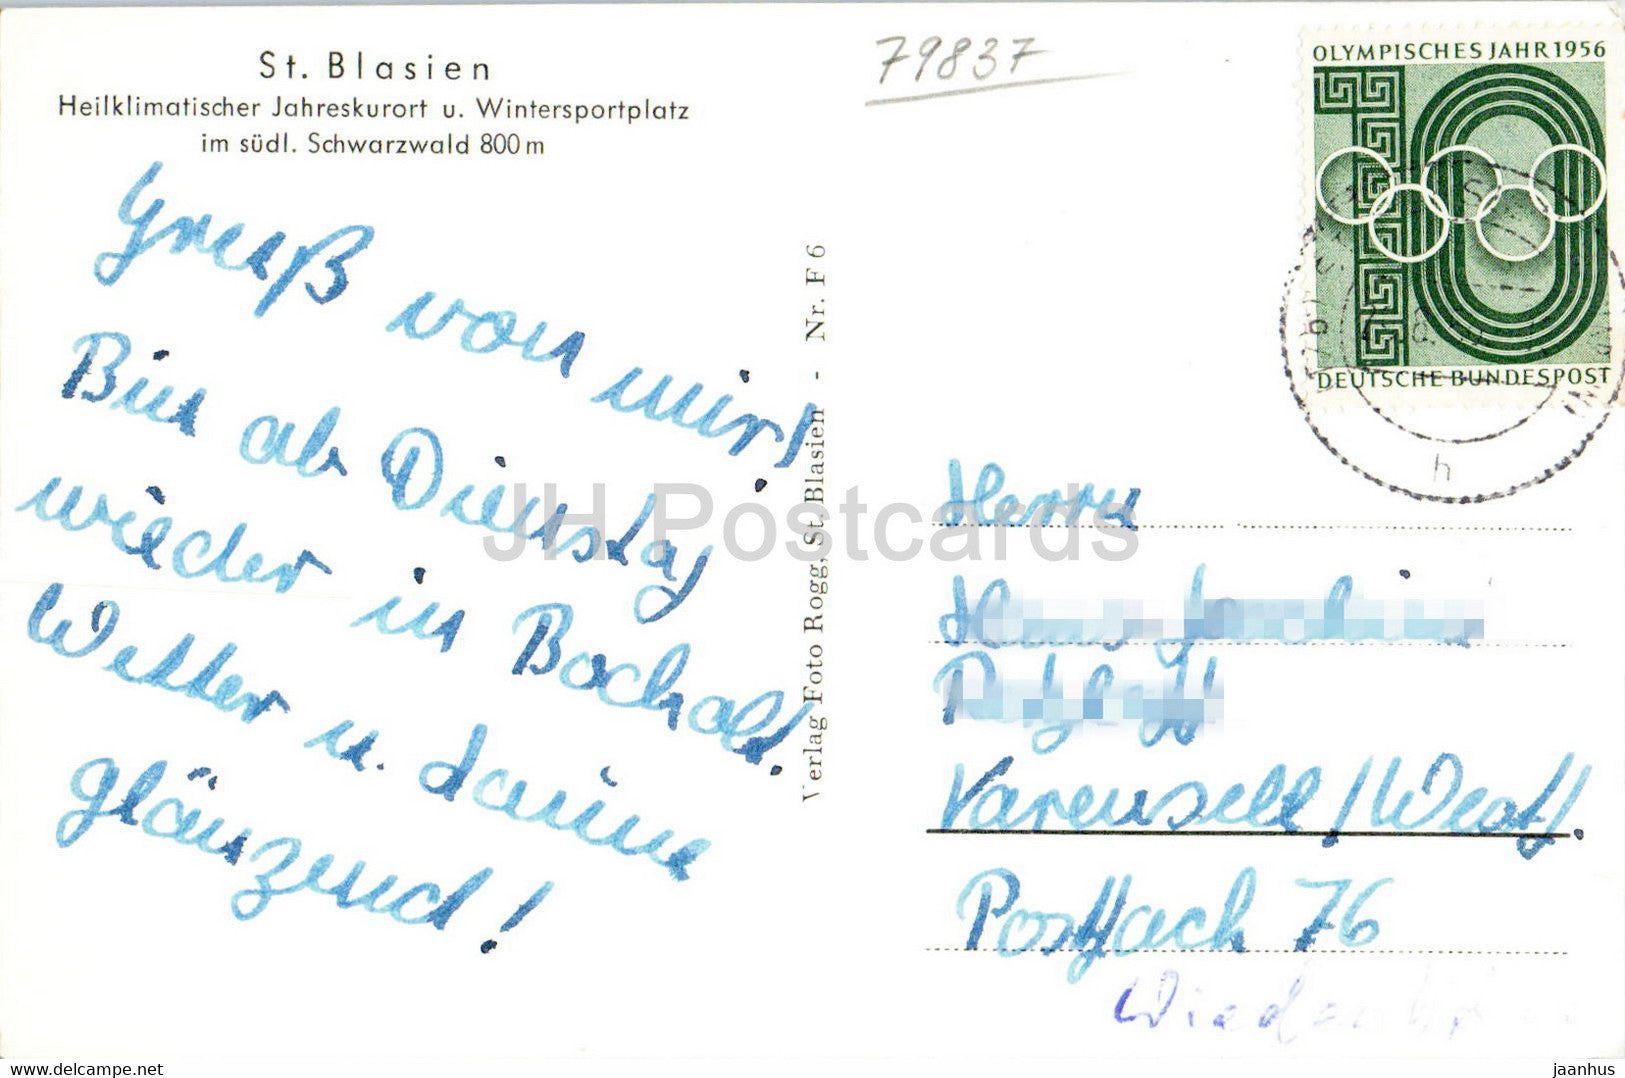 St. Blasien
Heilklimatischer Jahreskurort u. Wintersportplatz
im südl. Schwarzwald 800 m
79837
OLYMPISCHES JAHR 1956
DEUTSCHE BUNDESPOST
h
Gruß von mir!
Bin ab Dienstag
wieder in Bocholt.
Wetter u. Laune
glänzend!
Verlag Foto Rogg, St. Blasien - Nr. F 6
Herrn
Varensell/Westf.
Postfach 76
JH Postcards
delcampe.net
jaanhus